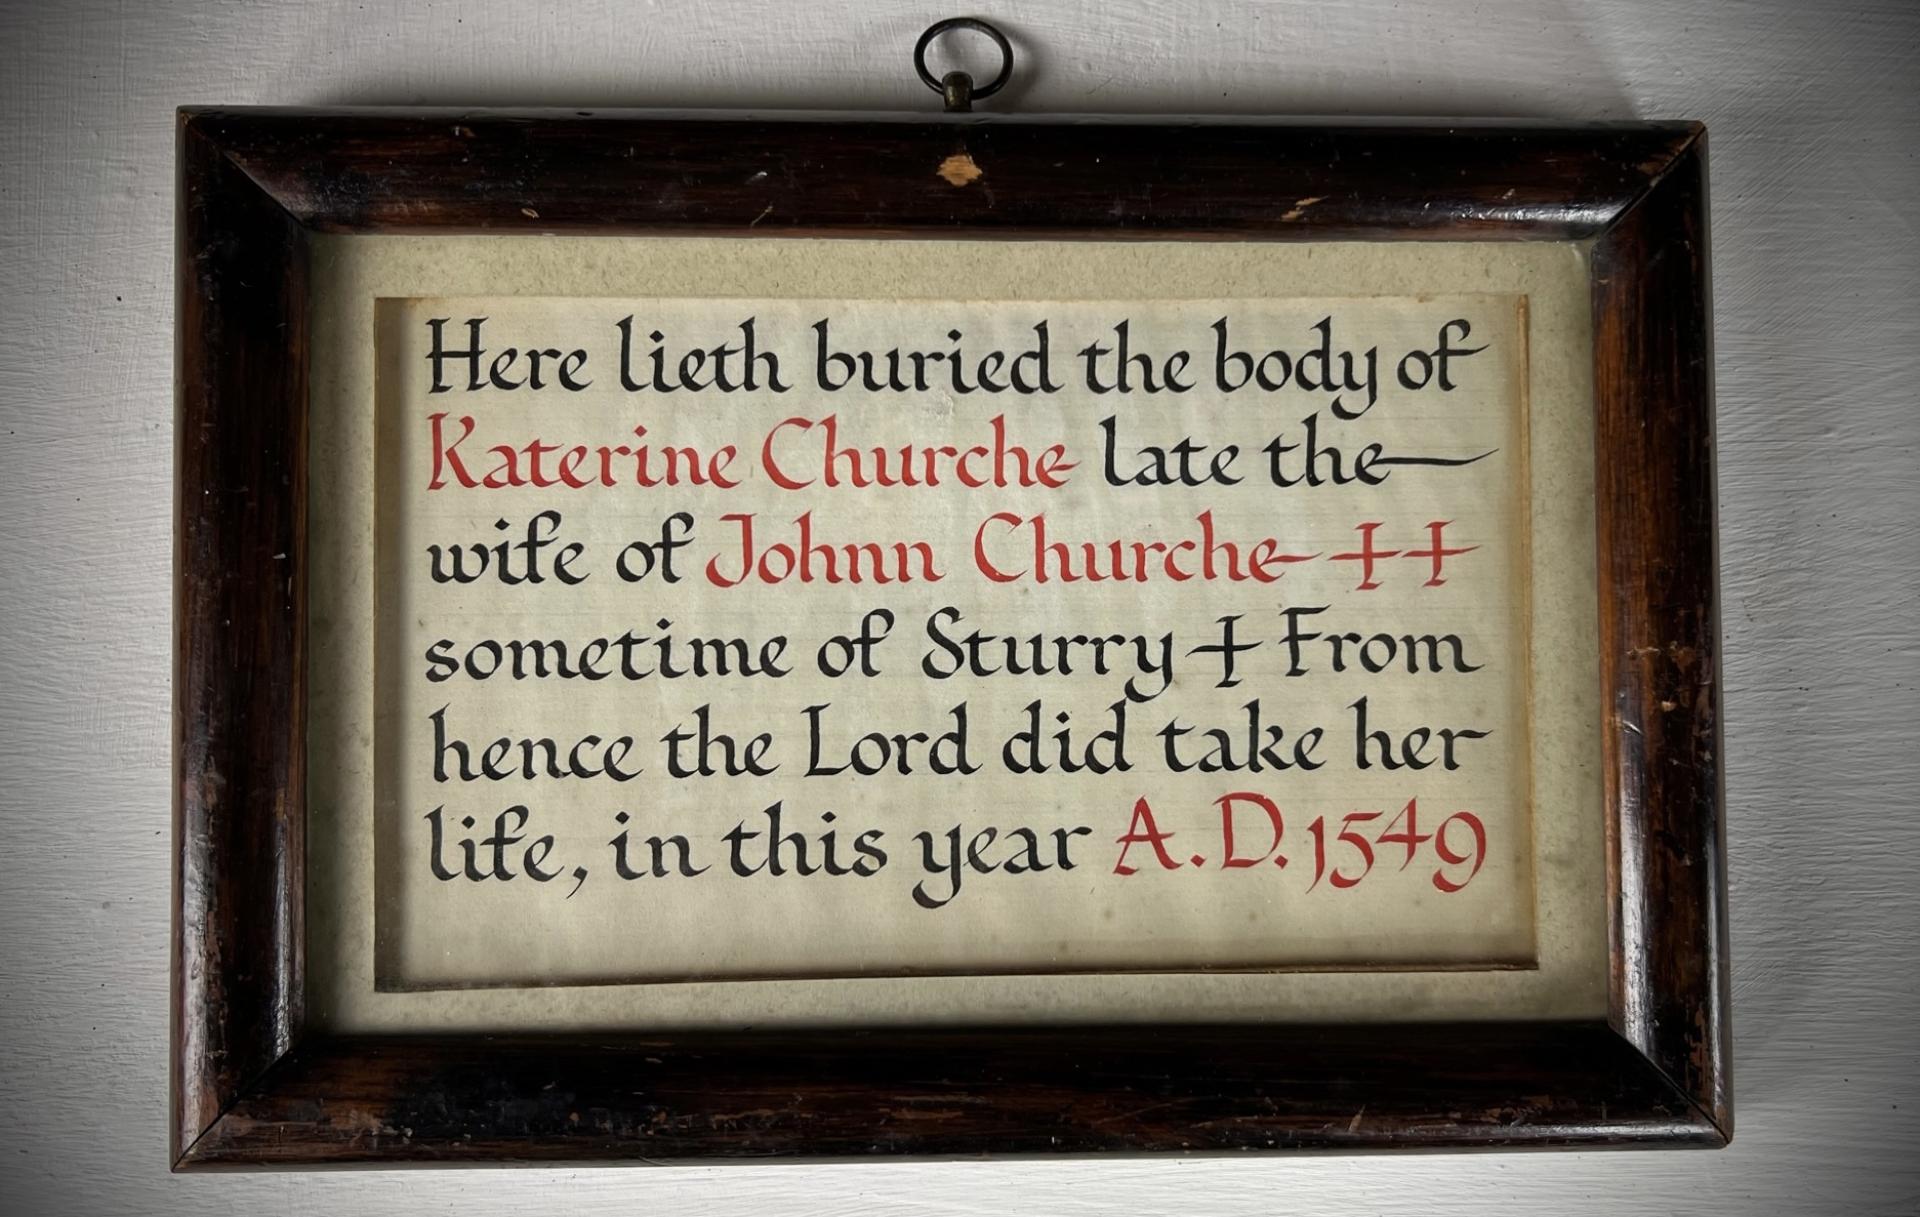 Here lieth buried the body of
Katerine Churche late the
wife of Johnn Churche ++
sometime of Sturry + From
hence the Lord did take her
life, in this year A.D. 1549